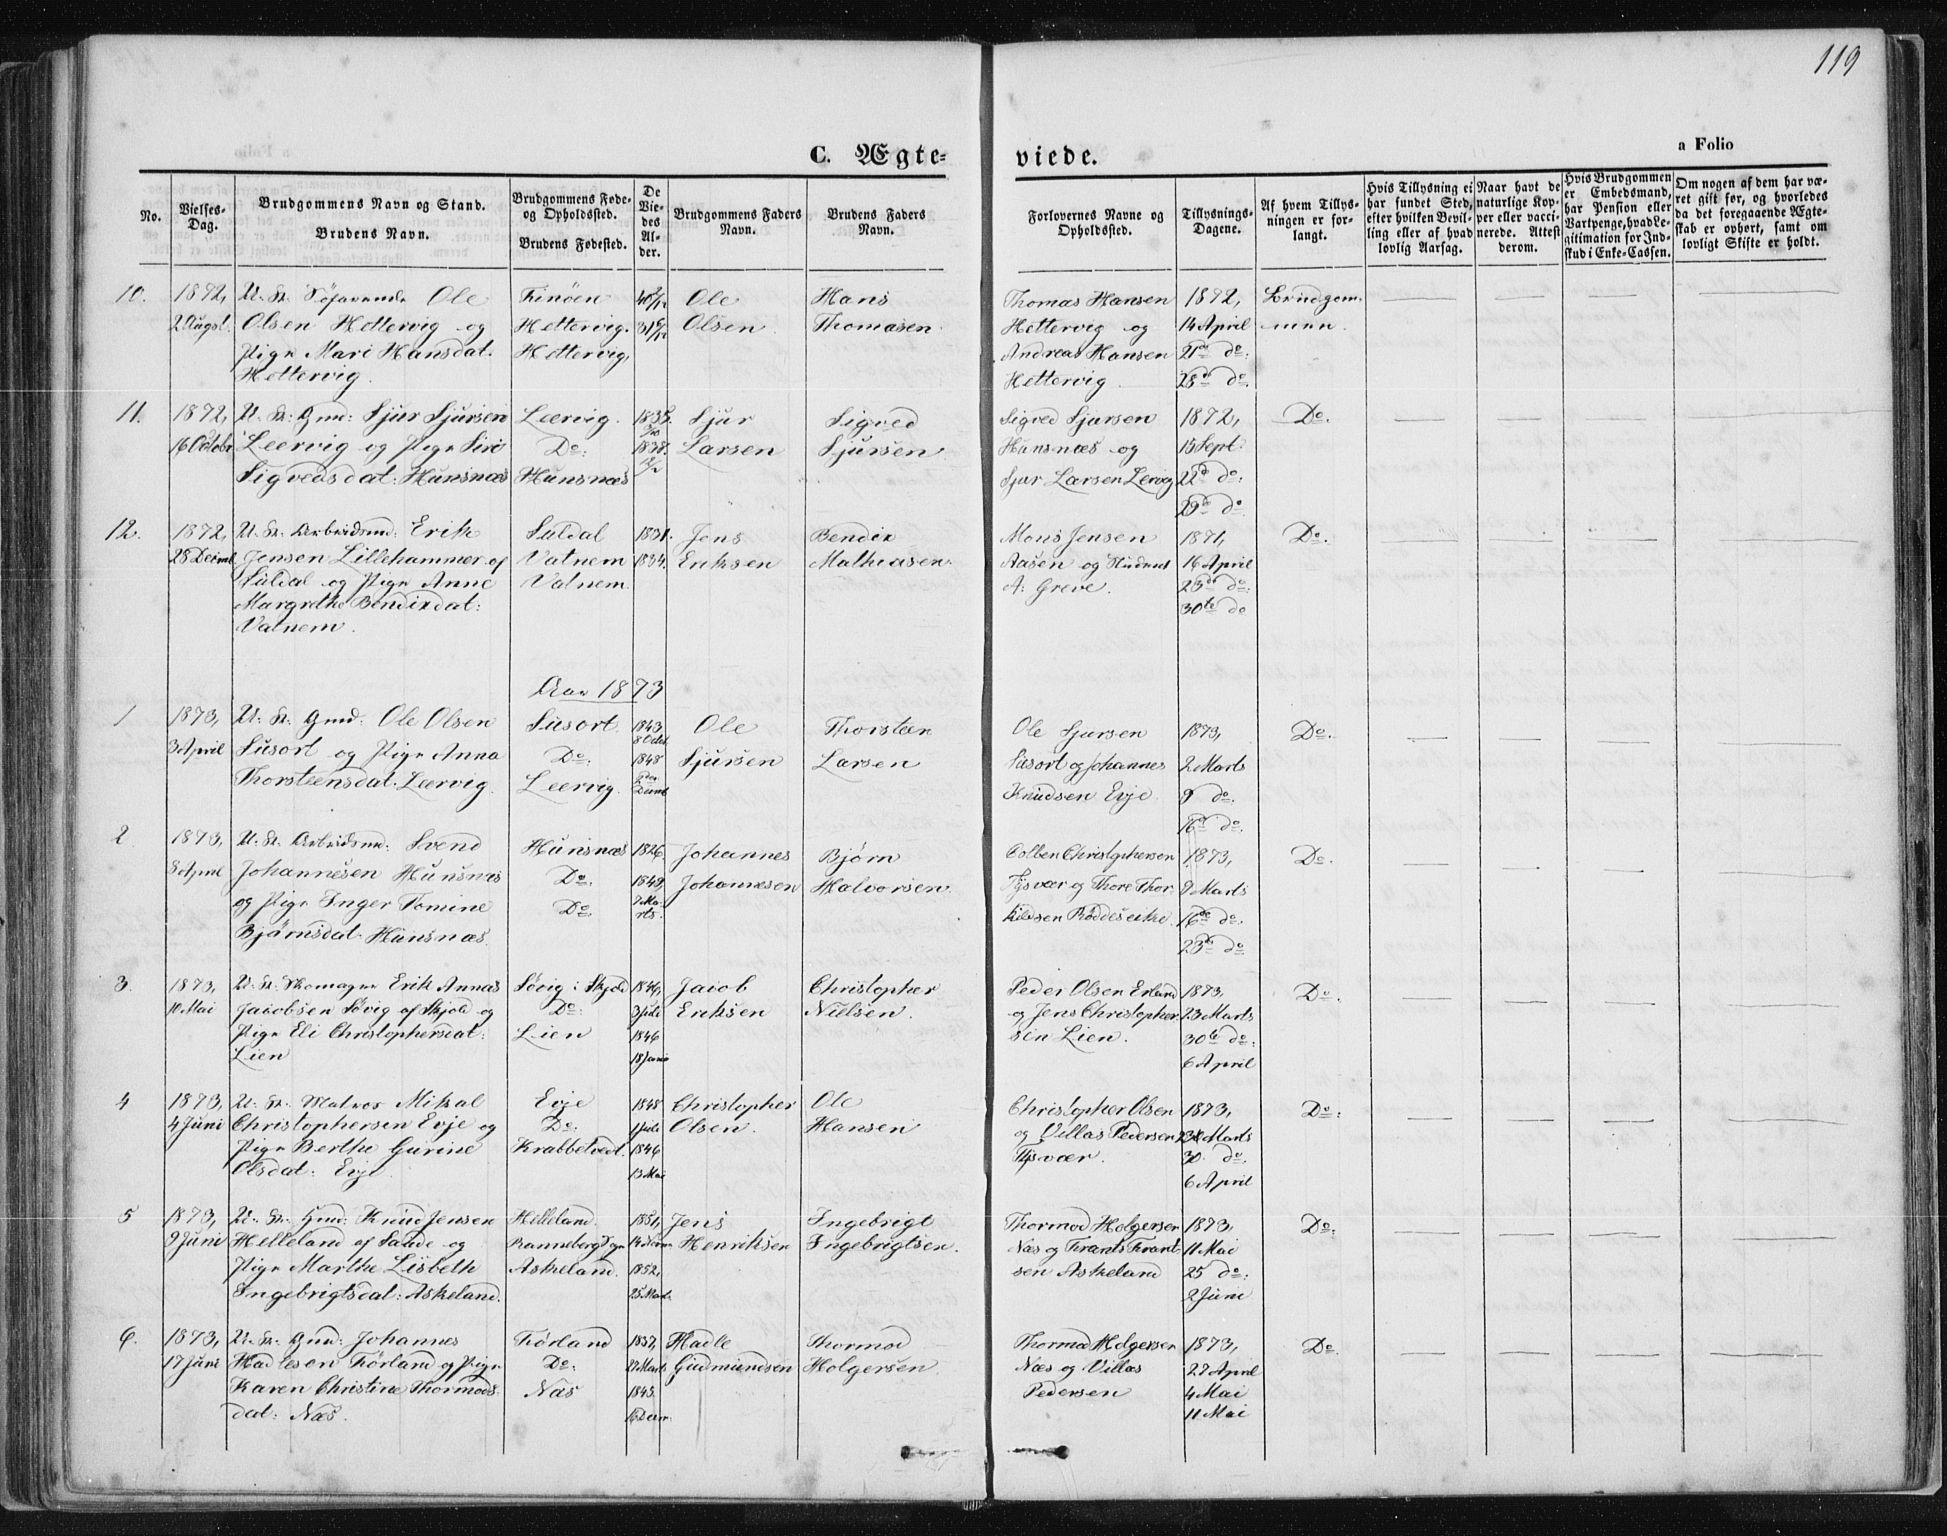 119
C. Ægte-
viede.
a Folio
No.
Vielses-
Dag.
Brudgommens Navn og Stand.
Brudens Navn.
Brudgommens Føde-
og Opholdssted.
Brudens Fødested.
De
Vie-
des
Al-
der.
Brudgommens Faders
Navn.
Brudens Faders
Navn.
Forlovernes Navne og
Opholdssted.
Tillysnings-
Dagene.
Af hvem Tillys-
ningen er for-
langt.
Hvis Tillysning ei
har fundet Sted,
efter hvilken Bevil-
ling eller af hvad
lovlig Aarsag.
Naar havt de
naturlige Kop-
per eller vacci-
nerede. Attest
derom.
Hvis Brudgommen
er Embedsmand,
har Pension eller
Vartpenge, hvad Le-
gitimation for Ind-
skud i Enke-Cassen.
Om nogen af dem har væ-
ret gift før, og hvorledes
da det foregaaende Ægte-
skab er ophørt, samt om
lovligt Skifte er holdt.
10.
1872,
2 Augst.
U. St. Søfarende Ole
Olsen Hettervig og
Pige Mari Hansdat.
Hettervig.
Finöen
Hettervig.
Hettervig,
Ole
Olsen
Hans
Thomasen.
Thomas Hansen
Hettervig og
Andreas Hansen
Hettervig.
1872,
14 April
21de do:
28de do.
Brudgom-
men.
11.
1872,
16 Octobr
U. St: Gmd: Sjur Sjursen
Leervig og Pige Siri
Sigvedsdat: Hunsnæs
Leervig.
Do:
Hunsnæs
1835.
1838.
Sjur
Larsen
Sigved
Sjursen
Sigved Sjursen
Hunsnæs og
Sjur Larsen Lervig
1872,
15 Sept:
22d do:
29de do
Do.
12.
1872,
28 Decmb
U. St. Arbeidsmd: Erik
Jensen Lillehammer af
Suldal og Pige Anne
Margrethe Bendixdat:
Vatnem.
Suldal
Vatnem
Vatnem
1831.
1834.
Jens
Eriksen
Bendix
Mathiasen.
Mons Jensen
Aasen og Student
A: Greve.
1871,
16 April
23de do:
30te do
Do.
Aar 1873
1
1873,
3 April
U: St. Gmd: Ole Olsen
Susort og Pige Anna
Thorsteensdat. Leervig.
Susort
Do:
Leervig.
1843,
8 Octb.
1848
Ole
Sjursen
Thorsteen
Larsen
Ole Sjursen
Susort og Johannes
Knudsen Evje.
1873,
2 Marts
9 do:
16d do:
Do.
2
1873,
8 April
U: St. Arbeidsmd: Svend
Johannesen Hunsnæs
og Pige Inger Tomine
Bjørnsdat. Hunsnæs.
Hunsnæs
Do:
Do.
1826,
1849,
7 Ma-
rts.
Johannes
Johannesen
Bjørn
Halvorsen.
Colben Christophersen
Tysvær og Thore Thor-
kildsen Røddeseike.
1873,
9 Marts
16de do:
23de do
Do.
3.
1873,
10 Mai
U. St. Skomager Erik Annas
Jacobsen Søvig af Skjold og
Pige Eli Christophersdat:
Lien
Søvig i Skjold
Do:
Lien
1846,
3 Juli
1846
18 Janu
Jacob
Eriksen
Christopher
Nielsen.
Peder Olsen Erland
og Jens Christopher-
sen Lien.
1873,
23 Marts
30te do:
6 April
Do.
4
1873,
4 Juni
U. St. Matros Mikal
Christophersen Evje og
Pige Berthe Gurine
Olsdat: Evje
Evje
Do:
Krabbetvedt.
1848
1 Juli
1846
13 Mai
Christopher
Olsen.
Ole
Hansen
Christopher Olsen
og Villas Pedersen
Tysvær.
1873,
23 Marts
30. do.
6 April
Do:
5
1873,
9 Juni
U. St. Gmd: Knud Jensen
Helleland af Saude og
Pige Marthe Lisbeth
Ingebrigtsdat: Askeland.
Helleland.
Askeland.
1851,
1852,
25 Mart.
Jens
Henriksen
Ingebrigt
Ingebrigtsen.
Thormod Holgersen
Næs og Frants Frant-
sen Askeland
1873,
11 Mai
25 do:
2 Juni
Do:
6.
1873,
17 Juni
U. St. Gmd: Johannes
Hadlesen Førland og Pige
Karen Christine Thormods-
dat: Næs.
Førland
Do:
Næs
1837,
27 Mart.
1843.
Hadle
Gudmundsen
Thormod
Holgersen.
Thormod Holgersen
Næs og Villas
Pedersen
1873,
27 April
4 Mai
11 Mai
Do.